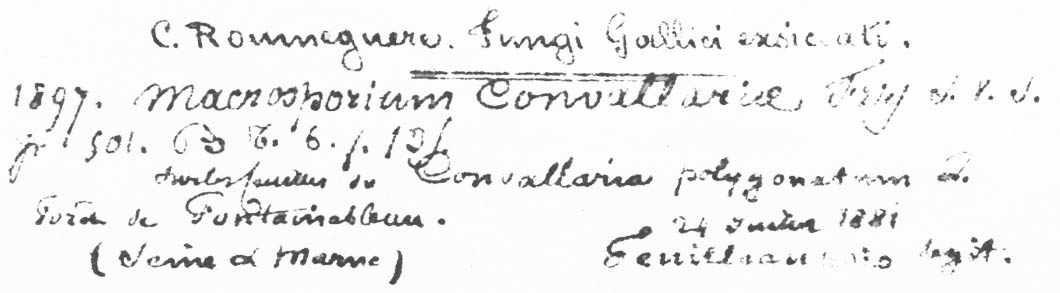 C. Roumeguere. Fungi Gallici exsiccati.
1897. Macrosporium Convallariae Fries S. V. S.
p. 501. B. 6. f. 13
sur les feuilles de Convallaria polygonatum L.
Forêt de Fontainebleau. 24 1881
(Seine et Marne) legit.